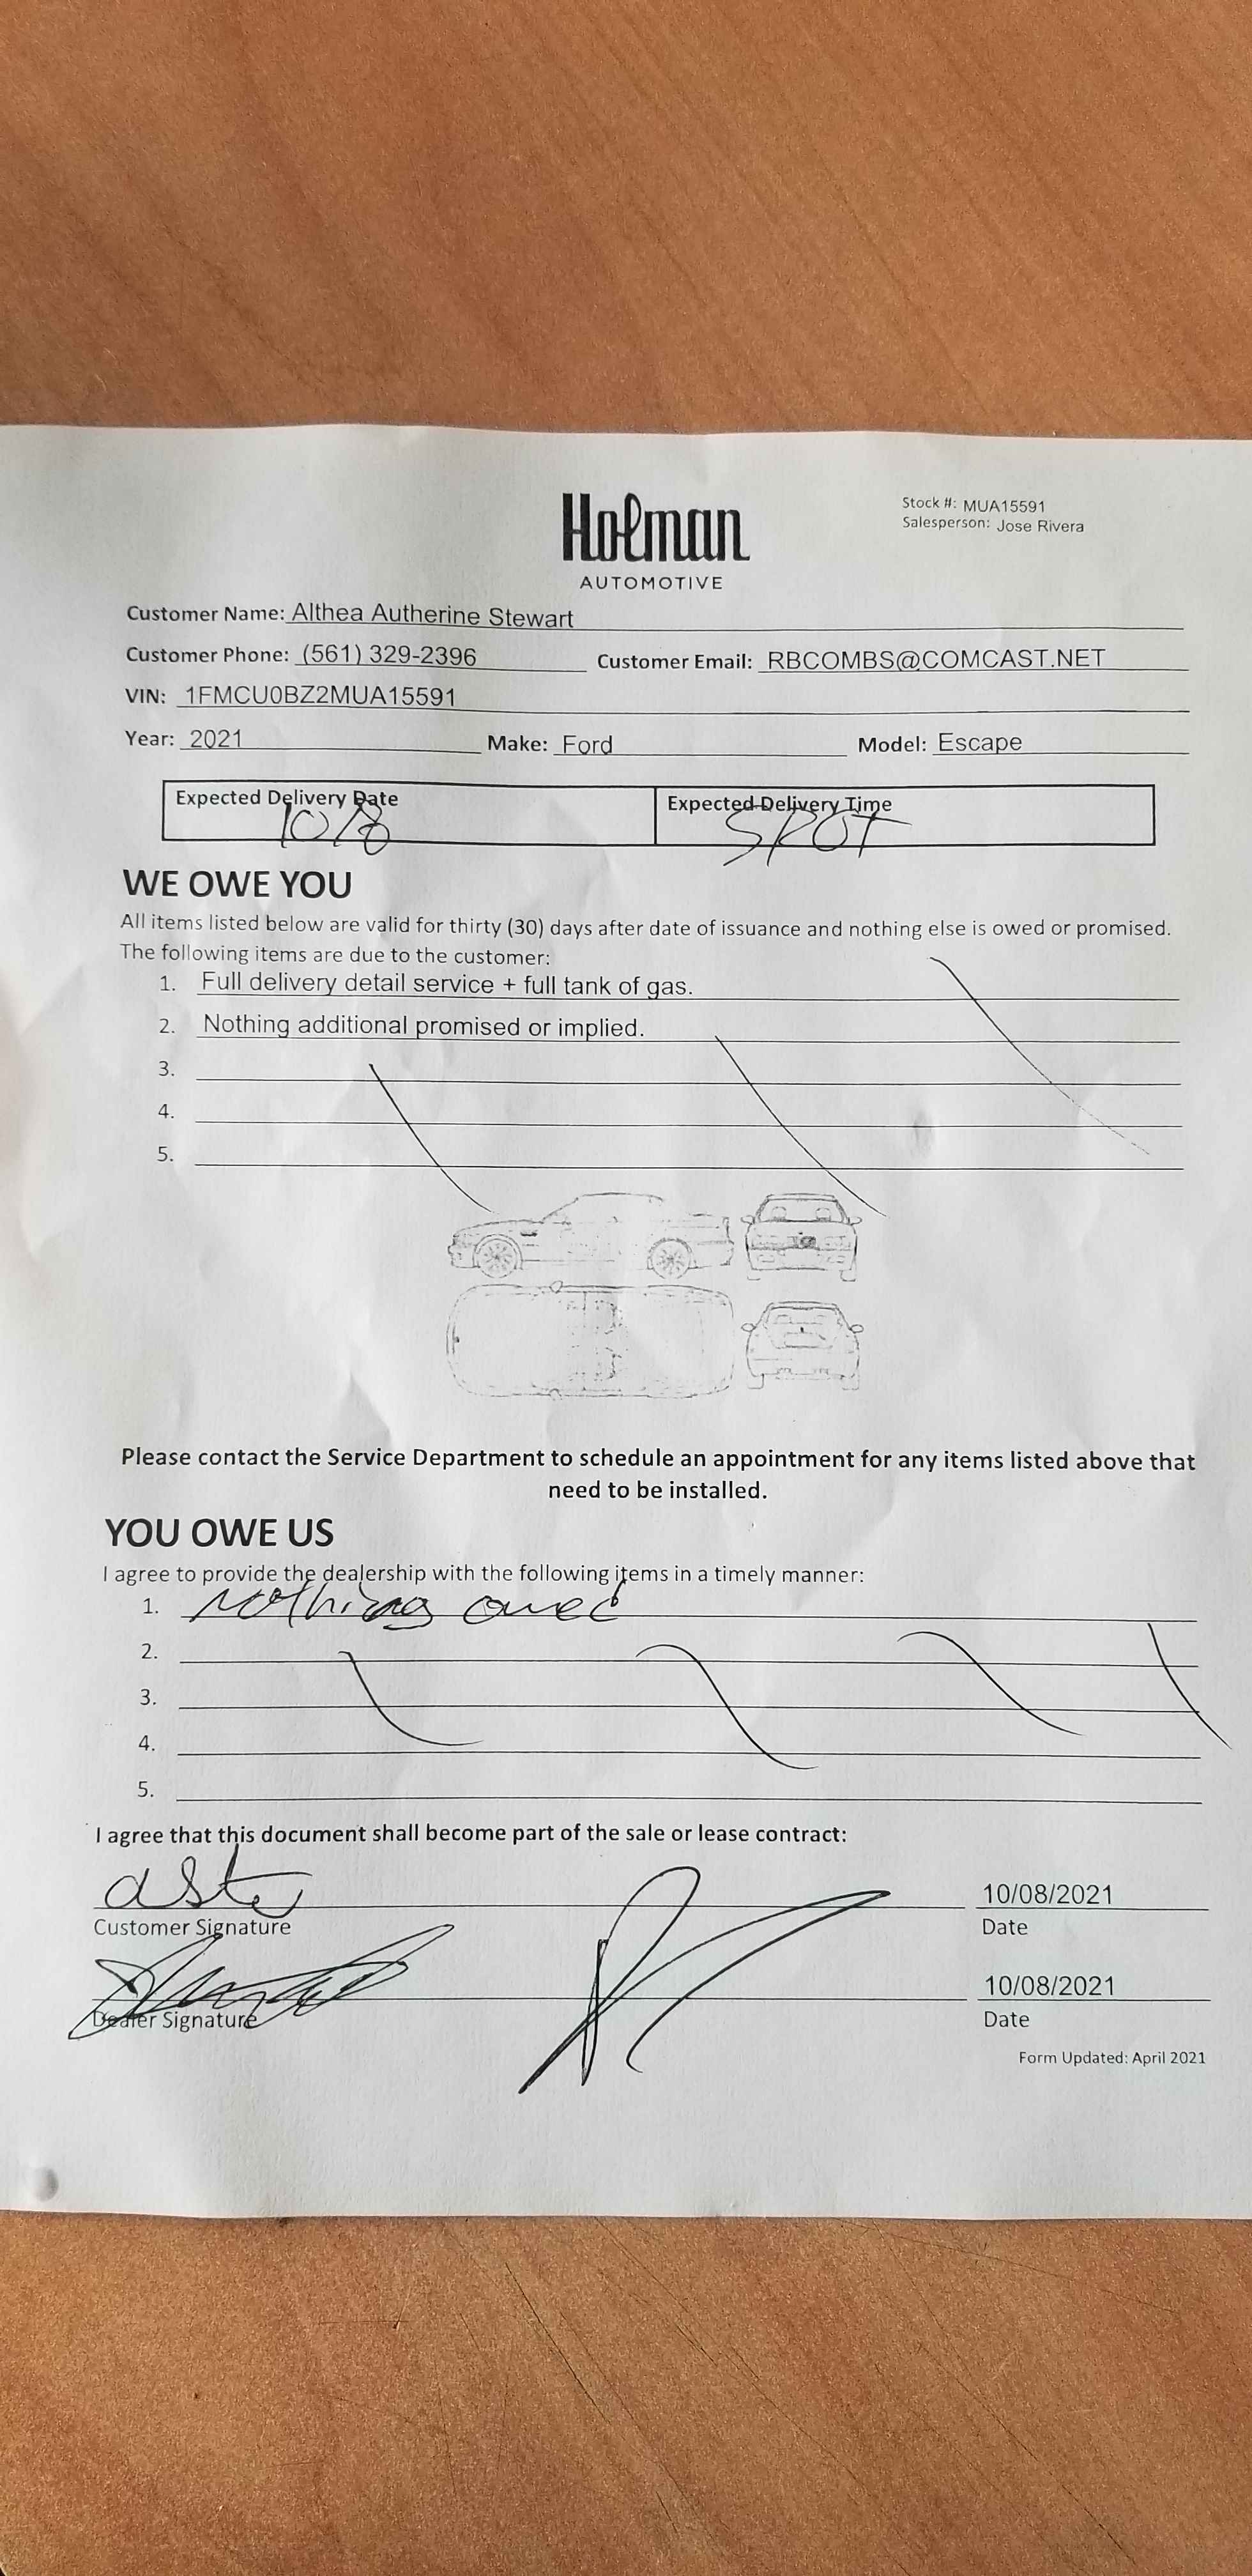 Holman
AUTOMOTIVE
Stock #: MUA15591
Salesperson: Jose Rivera
Customer Name: Althea Autherine Stewart
Customer Phone: (561) 329-2396 Customer Email: RBCOMBS@COMCAST.NET
VIN: 1FMCU0BZ2MUA15591
Year: 2021 Make: Ford Model: Escape
Expected Delivery Date Expected Delivery Time
10/8 SPOT
WE OWE YOU
All items listed below are valid for thirty (30) days after date of issuance and nothing else is owed or promised.
The following items are due to the customer:
1. Full delivery detail service + full tank of gas.
2. Nothing additional promised or implied.
3.
4.
5.
Please contact the Service Department to schedule an appointment for any items listed above that
need to be installed.
YOU OWE US
I agree to provide the dealership with the following items in a timely manner:
1. Nothing owed
2.
3.
4.
5.
I agree that this document shall become part of the sale or lease contract:
10/08/2021
Customer Signature Date
10/08/2021
Dealer Signature Date
Form Updated: April 2021